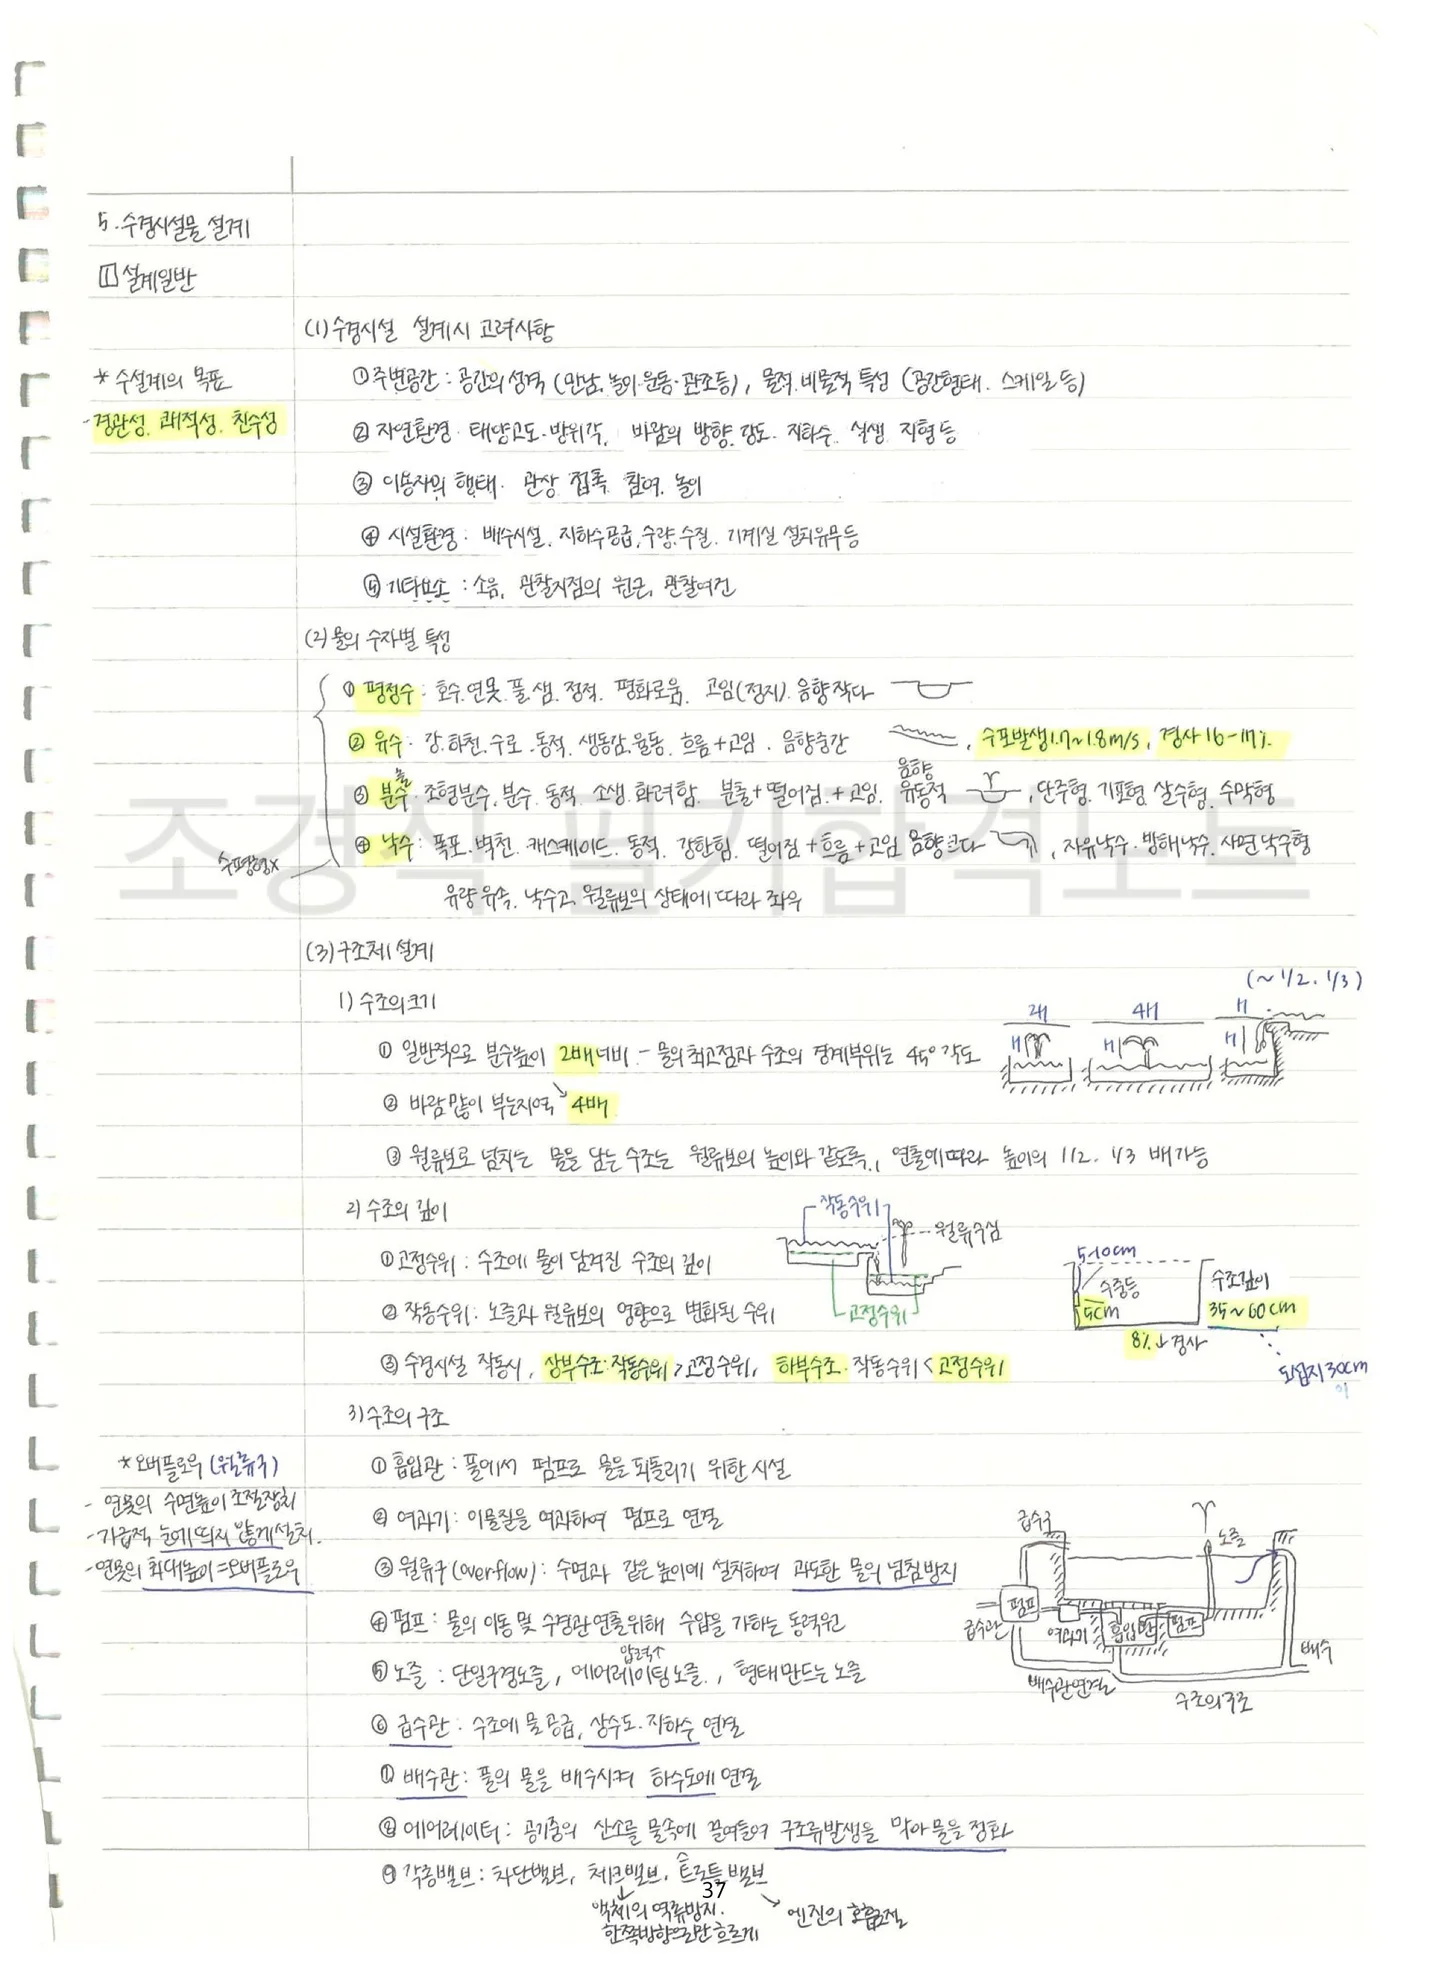 5. 수경시설물 설계
1 설계일반
(1) 수경시설 설계시 고려사항
* 수설계의 목표
- 경관성. 쾌적성. 친수성
① 주변공간 : 공간의 성격 (만남. 놀이. 운동. 관조등), 물적. 비물적 특성 (공간형태. 스케일 등)
② 자연환경. 태양고도. 방위각. 바람의 방향. 강도. 지하수. 식생. 지형 등
③ 이용자의 행태. 관상. 접촉. 참여. 놀이
④ 시설환경 : 배수시설. 지하수공급. 수량. 수질. 기계실 설치유무등
⑤ 기타요소 : 소음, 관찰지점의 원근, 관찰여건
(2) 물의 수자별 특성
① 평정수 : 호수. 연못. 풀. 샘. 정적. 평화로움. 고임(정지). 음향 작다
② 유수. 강. 하천. 수로. 동적. 생동감. 율동. 흐름+고임. 음향중간 , 수포발생 1.7~1.8m/s, 경사 16-17%.
③ 분수. 조형분수. 분수. 동적. 소생. 화려함. 분출+떨어짐+고임. 음향 유동적 , 단주형. 기포형. 살수형. 수막형
④ 낙수 : 폭포. 벽천. 캐스케이드. 동적. 강한힘. 떨어짐+흐름+고임. 음향크다 , 자유낙수. 방해낙수. 사면낙수형
수평형x
유량. 유속. 낙수고. 월류보의 상태에 따라 좌우
조경직 필기합격노트
(3) 구조체 설계
1) 수조의크기
(~1/2. 1/3)
2H 4H H
H H H
① 일반적으로 분수높이 2배너비 - 물의 최고점과 수조의 경계부위는 45° 각도
② 바람 많이 부는지역 4배
③ 월류보로 넘치는 물을 담는 수조는 월류보의 높이와 같도록, 연출에따라 높이의 1/2. 1/3 배가능
2) 수조의 깊이
작동수위
월류수심
고정수위
5-10cm
수중등
5cm
수조깊이
35~60cm
8%↓경사
도섭지 30cm
① 고정수위 : 수조에 물이 담겨진 수조의 깊이
② 작동수위 : 노즐과 월류보의 영향으로 변화된 수위
③ 수경시설 작동시, 상부수조. 작동수위 > 고정수위, 하부수조. 작동수위 < 고정수위
3) 수조의 구조
* 오버플로우 (월류구)
- 연못의 수면높이 조절장치
- 가급적 눈에 띄지 않게 설치.
- 연못의 최대높이 = 오버플로우
① 흡입관 : 풀에서 펌프로 물을 되돌리기 위한 시설
② 여과기 : 이물질을 여과하여 펌프로 연결
③ 월류구 (overflow) : 수면과 같은 높이에 설치하여 과도한 물의 넘침방지
④ 펌프 : 물의 이동 및 수경관 연출위해 수압을 가하는 동력원
⑤ 노즐 : 단일구경노즐, 에어레이팅노즐, 형태만드는 노즐
압력↑
⑥ 급수관 : 수조에 물 공급, 상수도. 지하수 연결
⑦ 배수관 : 풀의 물을 배수시켜 하수도에 연결
⑧ 에어레이터 : 공기중의 산소를 물속에 끌여들여 구조류발생을 막아 물을 정화
⑨ 각종밸브 : 차단밸브, 체크밸브, 스로틀 밸브
액체의 역류방지.
한쪽방향으로만 흐르게
엔진의 호흡조절
급수구
노즐
펌프
급수관
여과기
흡입관
펌프
배수
배수관연결
수조의구조
37